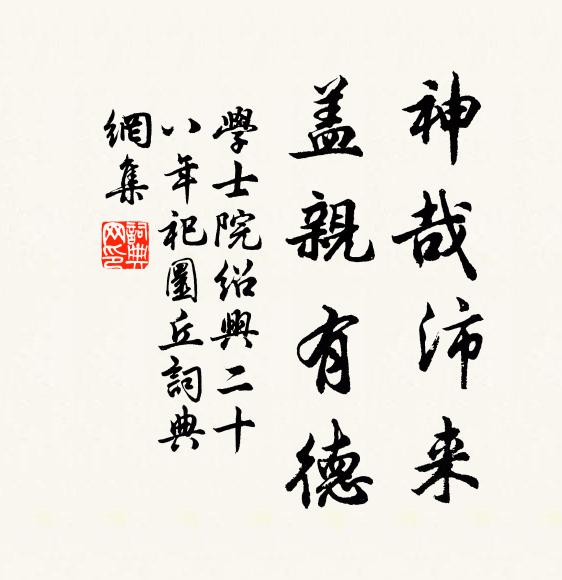 神哉沛来
盖親有德
學士院紹興二十
八年祀圜丘詞典
網集
詞典
网印